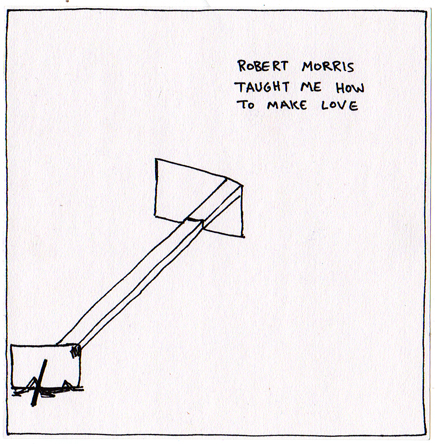 ROBERT MORRIS
TAUGHT ME HOW
TO MAKE LOVE